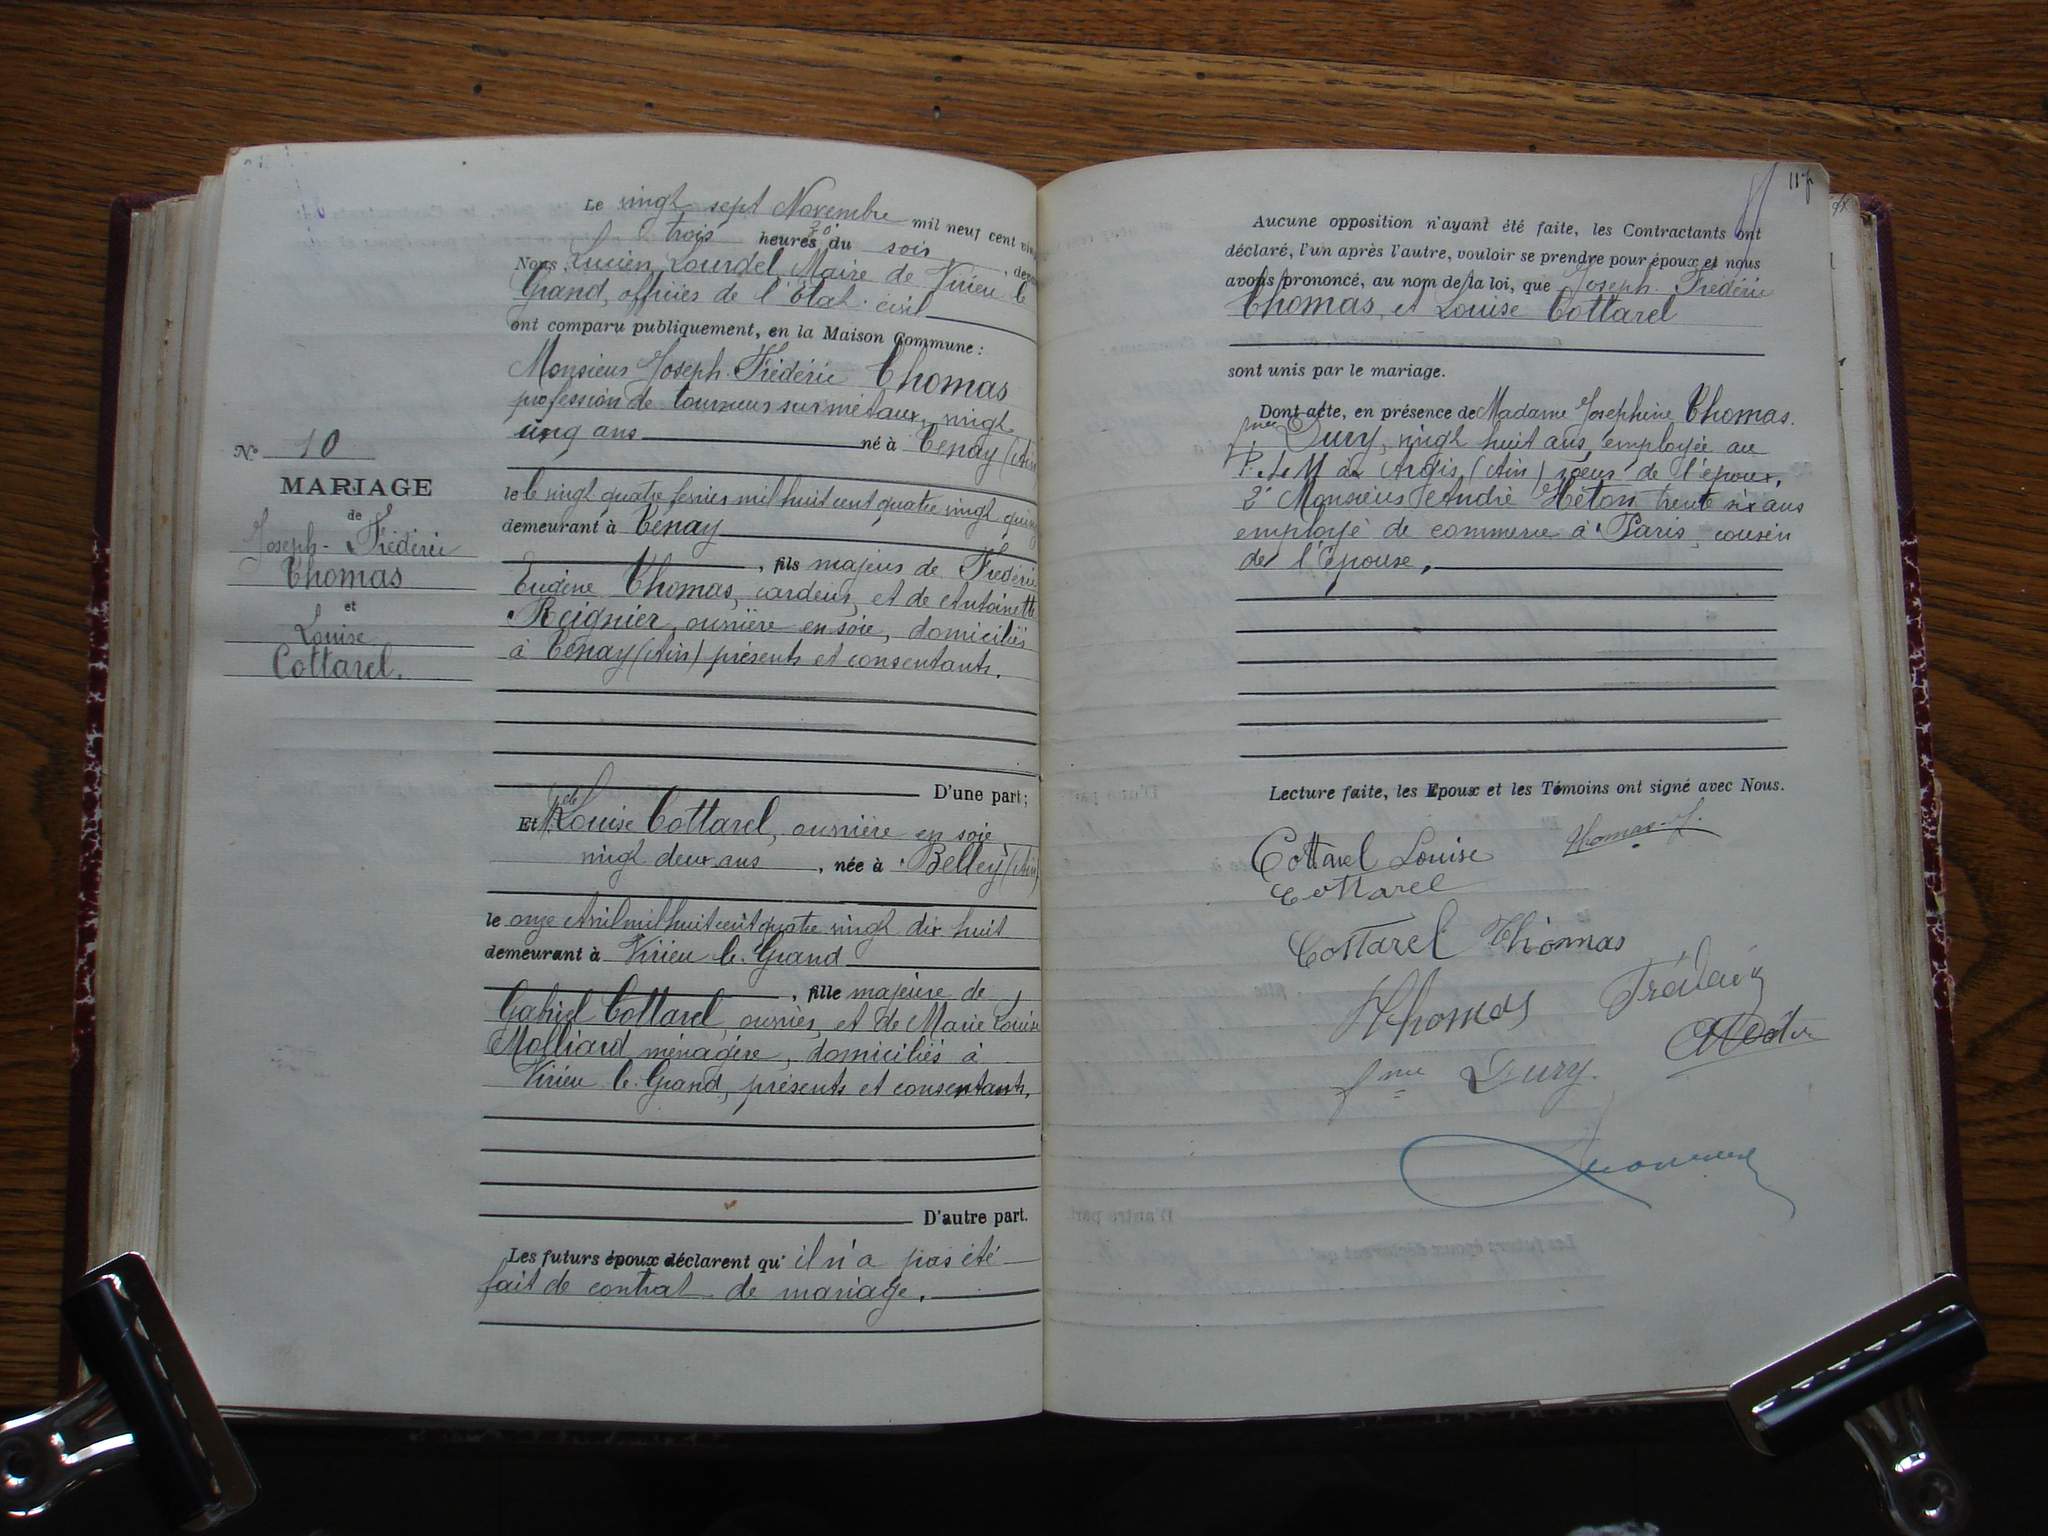 Le vingt sept Novembre mil neuf cent
trois heures 30 du soir
Nous, Lucien Lourdel, Maire de Virieu le
Grand, officier de l'État-civil
ont comparu publiquement, en la Maison Commune :
Monsieur Joseph-Frédéric Thomas
profession de tourneur sur métaux, vingt
cinq ans né à Tenay (Ain
le le vingt quatre février mil huit cent quatre vingt quinze
demeurant à Tenay
, fils majeur de Frédéric
Eugène Thomas, cardeur, et de Antoinette
Reignier, ouvrière en soie, domiciliés
à Tenay (Ain) présents et consentants.
D'une part ;
Et Mlle Louise Cottarel, ouvrière en soie
vingt deux ans, née à Belley (Ain)
le onze Avril mil huit cent quatre vingt dix huit
demeurant à Virieu le-Grand
, fille majeure de
Gabriel Cottarel, ouvrier, et de Marie Louise
Molliard, ménagère, domiciliés à
Virieu le-Grand, présents et consentants.
D'autre part.
Les futurs époux déclarent qu'il n'a pas été
fait de contrat de mariage.
N° 10
MARIAGE
de
Joseph-Frédéric
Thomas
et
Louise
Cottarel.
Aucune opposition n'ayant été faite, les Contractants ont
déclaré, l'un après l'autre, vouloir se prendre pour époux et nous
avons prononcé, au nom de la loi, que Joseph-Frédéric
Thomas, et Louise Cottarel
sont unis par le mariage.
Dont acte, en présence de Madame Joséphine Thomas.
fme Dury, vingt huit ans, employée au
P.L.M à Argis, (Ain) sœur de l'époux,
2° Monsieur André Héton trente six ans
employé de commerce à Paris, cousin
de l'Épouse.
Lecture faite, les Epoux et les Témoins ont signé avec Nous.
Cottarel Louise Thomas J.
Cottarel
Cottarel Thomas
Thomas Frédéric
fme Dury.